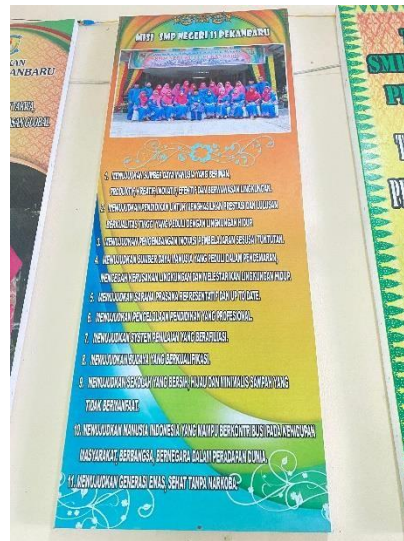 MISI SMP NEGERI 11 PEKANBARU
1. MEWUJUDKAN SUMBER DAYA MANUSIA YANG BERIMAN,
PRODUKTIF, KREATIF, INOVATIF, EFEKTIF DAN BERWAWASAN LINGKUNGAN.
2. MEWUJUDKAN PENDIDIKAN UNTUK MENGHASILKAN PRESTASI DAN LULUSAN
BERKUALITAS TINGGI YANG PEDULI DENGAN LINGKUNGAN HIDUP
3. MEWUJUDKAN PENGEMBANGAN INOVASI PEMBELAJARAN SESUAI TUNTUTAN.
4. MEWUJUDKAN SUMBER DAYA MANUSIA YANG PEDULI DALAM PENCEMARAN,
MENCEGAH KERUSAKAN LINGKUNGAN DAN MELESTARIKAN LINGKUNGAN HIDUP.
5. MEWUJUDKAN SARANA PRASANA REPRESENTATIF DAN UP TO DATE.
6. MEWUJUDKAN PENGELOLAAN PENDIDIKAN YANG PROFESIONAL.
7. MEWUJUDKAN SYSTEM PENILAIAN YANG BERAFILIASI.
8. MEWUJUDKAN BUDAYA YANG BERKUALIFIKASI.
9. MEWUJUDKAN SEKOLAH YANG BERSIH, HIJAU DAN MINIMALIS SAMPAH YANG
TIDAK BERMANFAAT.
10. MEWUJUDKAN MANUSIA INDONESIA YANG MAMPU BERKONTRIBUSI PADA KEHIDUPAN
MASYARAKAT, BERBANGSA, BERNEGARA DALAM PERADAPAN DUNIA.
11. MEWUJUDKAN GENERASI EMAS, SEHAT TANPA NARKOBA.